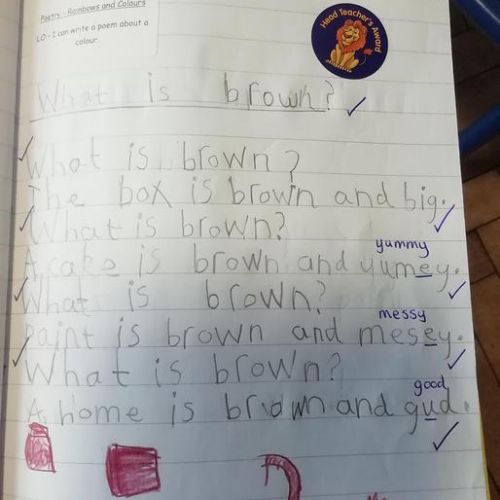 Poetry - Rainbows and Colours
LO - I can write a poem about a
colour.
Head Teacher's Award
What is brown?
What is brown?
The box is brown and big.
What is brown?
yummy
A cake is brown and yumey.
What is brown?
messy
Paint is brown and mesey.
What is brown?
good
A home is brown and gud.